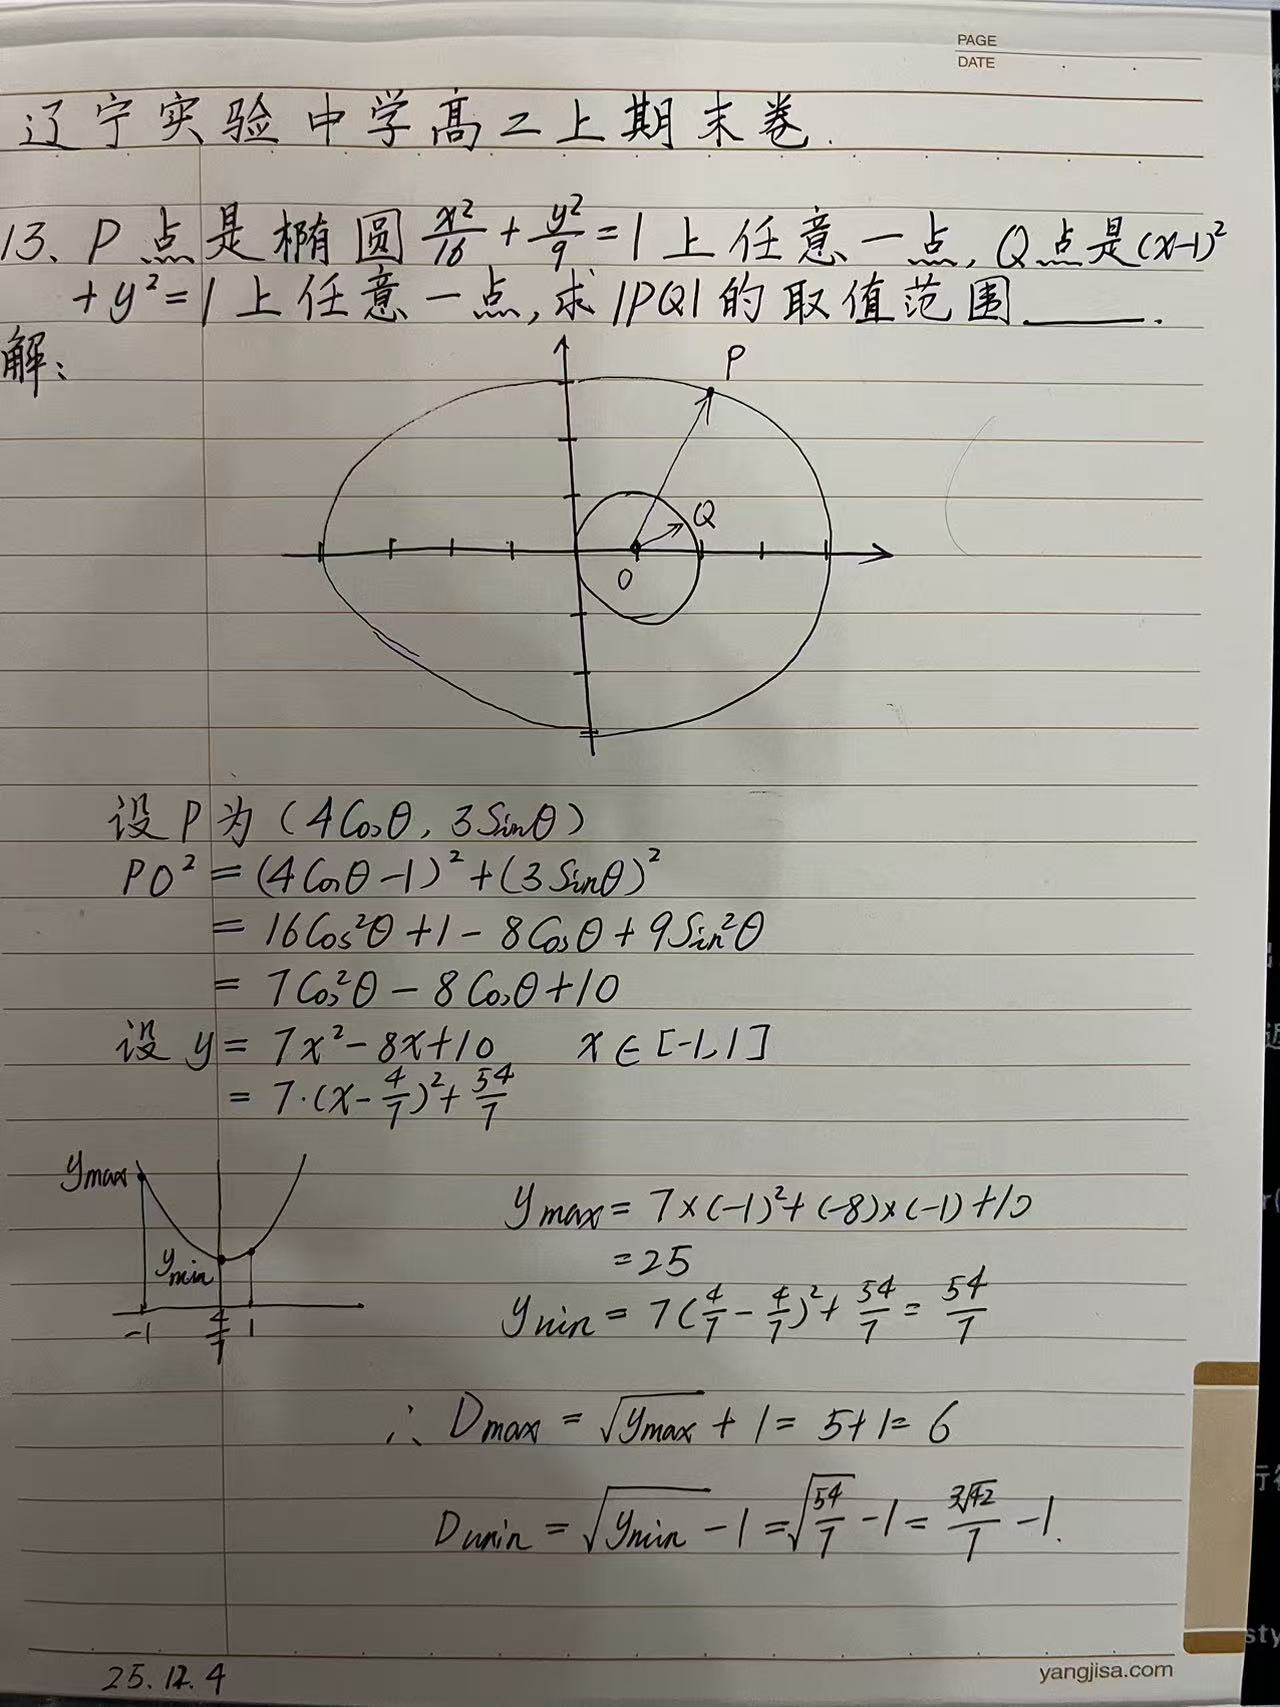 PAGE
DATE
辽宁实验中学高二上期末卷.
13、P点是椭圆 x²/16 + y²/9 = 1 上任意一点, Q点是(x-1)²
+ y² = 1 上任意一点, 求|PQ|的取值范围____.
解:
P
Q
O
设P为(4Cosθ, 3Sinθ)
PO² = (4Cosθ-1)² + (3Sinθ)²
= 16Cos²θ + 1 - 8Cosθ + 9Sin²θ
= 7Cos²θ - 8Cosθ + 10
设 y = 7x² - 8x + 10 x ∈ [-1, 1]
= 7·(x - 4/7)² + 54/7
ymax
ymin
-1 4/7 1
ymax = 7×(-1)² + (-8)×(-1) + 10
= 25
ymin = 7(4/7 - 4/7)² + 54/7 = 54/7
∴ Dmax = √ymax + 1 = 5+1 = 6
Dmin = √ymin - 1 = √(54/7) - 1 = 3√42/7 - 1.
25.12.4
yangjisa.com